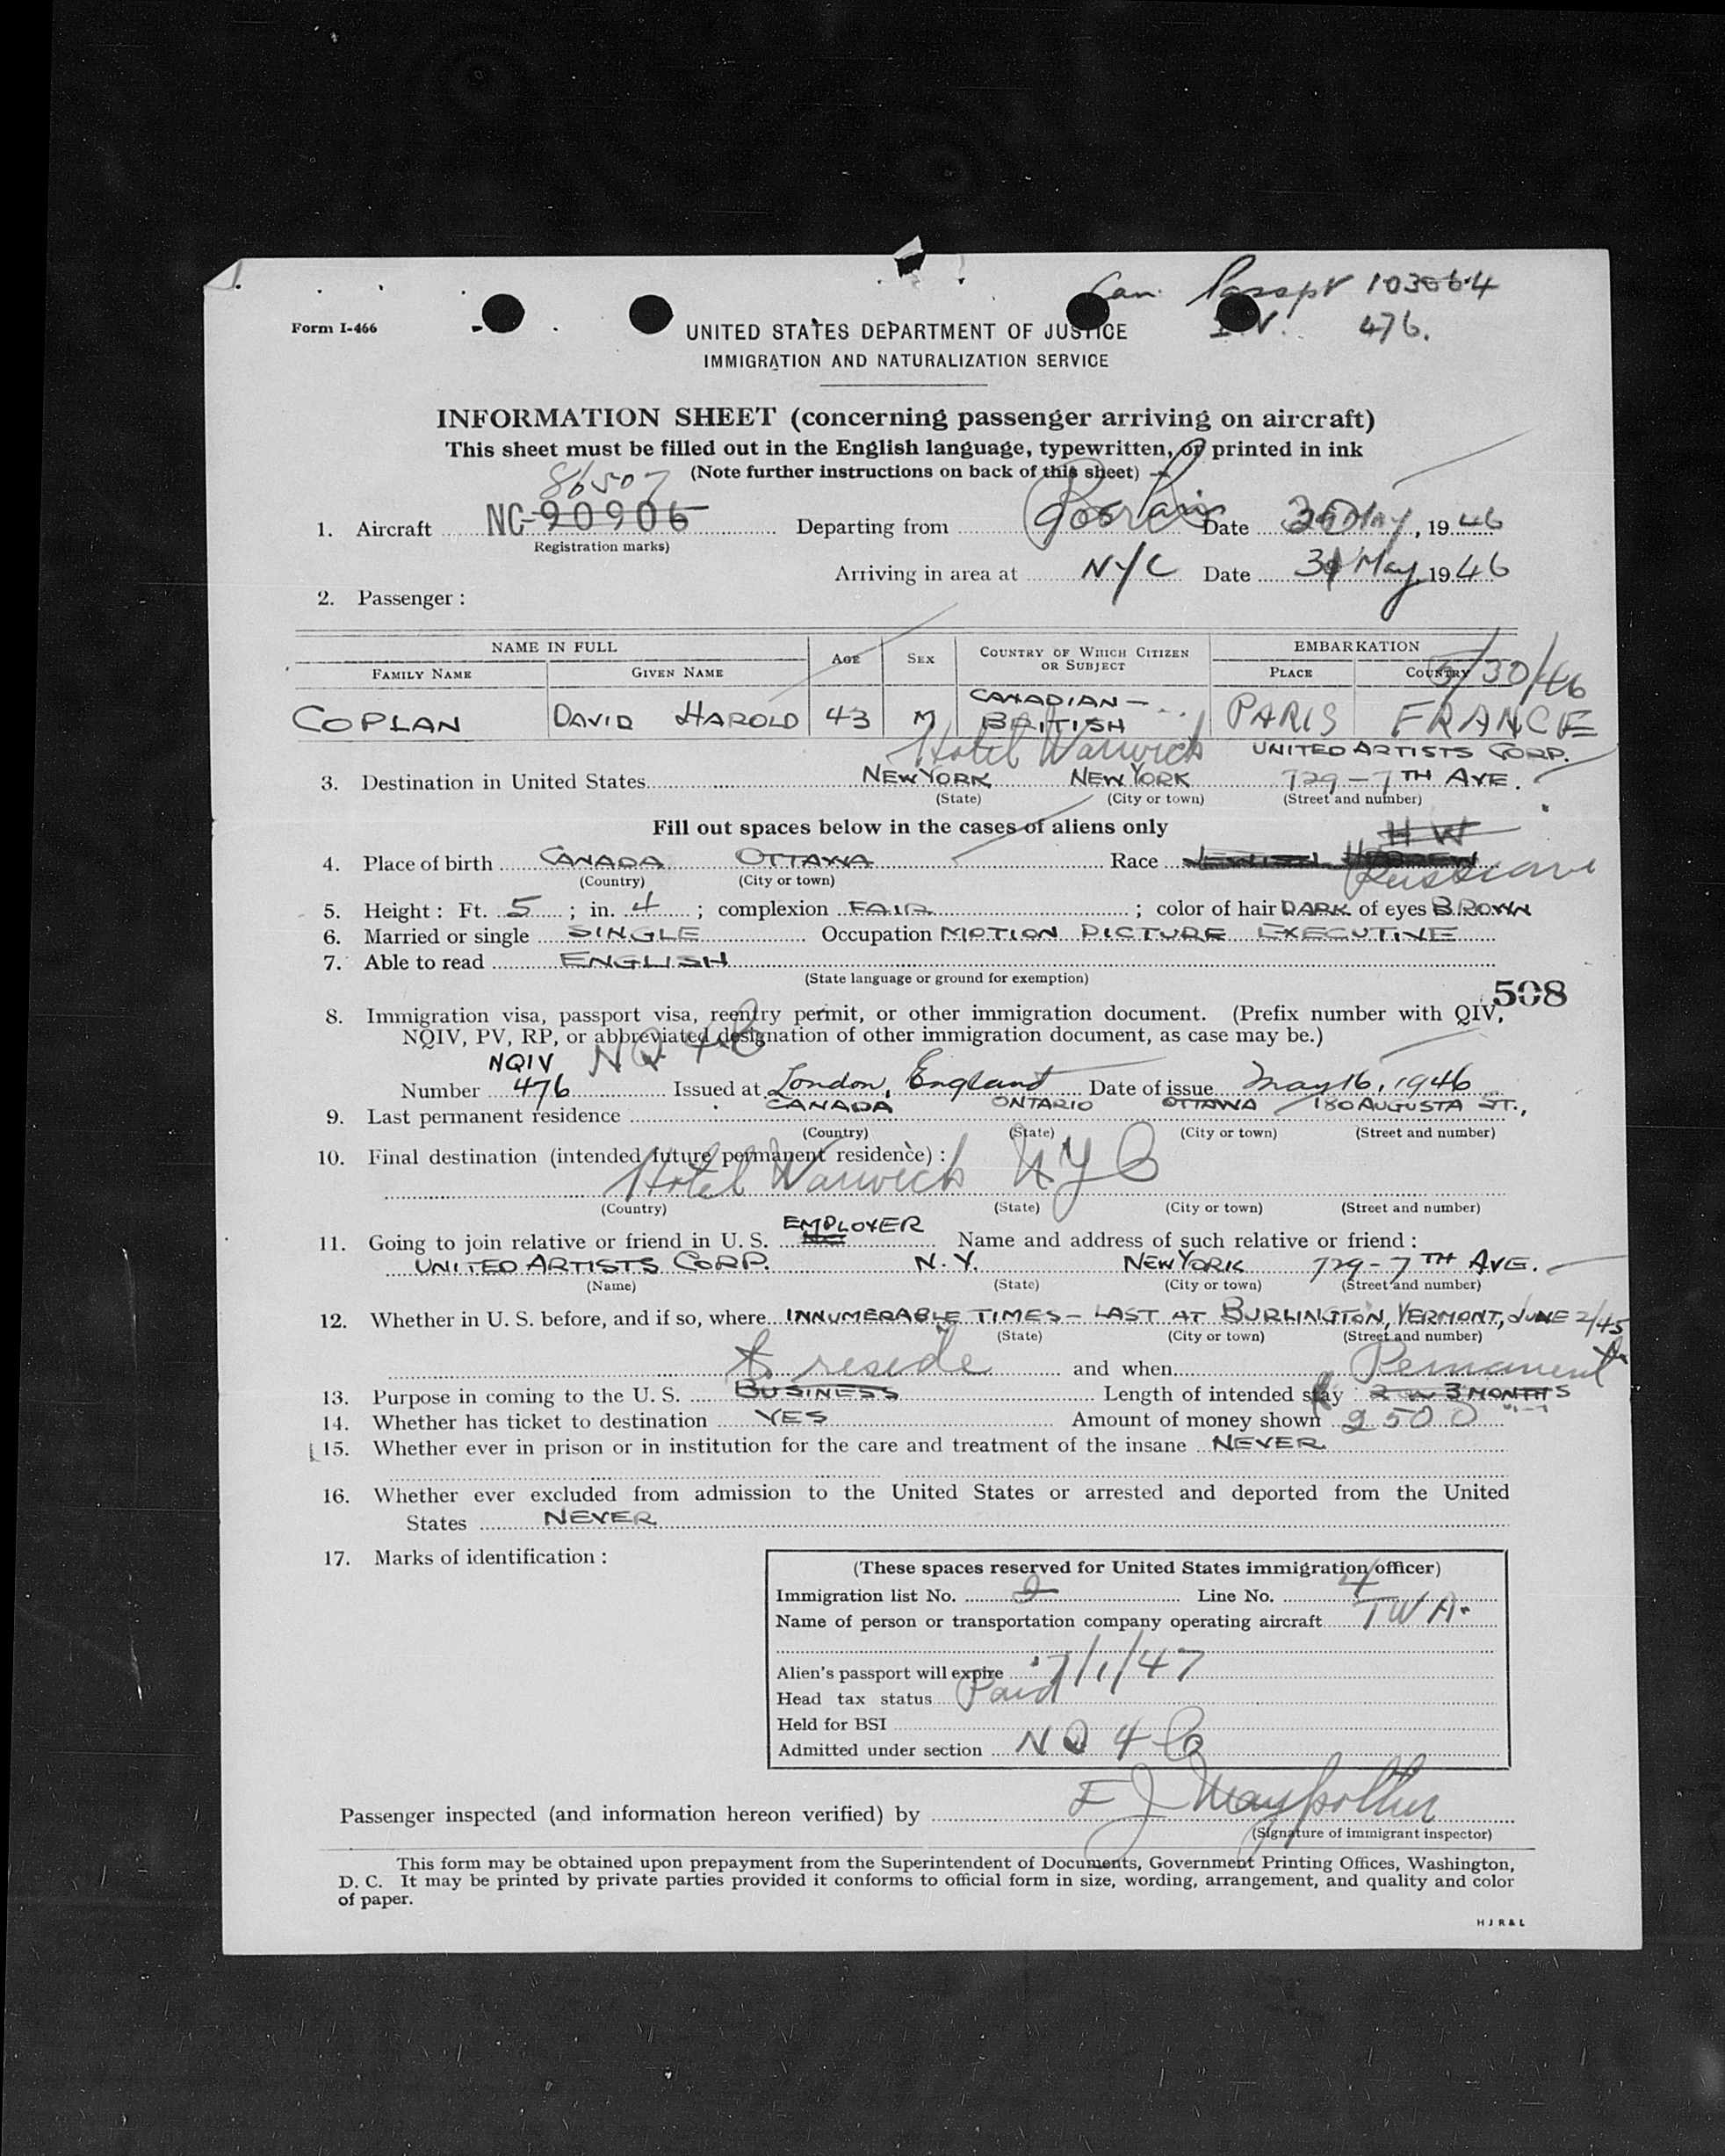 Can. Passpt 103564
Form I-466
UNITED STATES DEPARTMENT OF JUSTICE
I.V. 476.
IMMIGRATION AND NATURALIZATION SERVICE
INFORMATION SHEET (concerning passenger arriving on aircraft)
This sheet must be filled out in the English language, typewritten, or printed in ink
(Note further instructions on back of this sheet)
86507
1. Aircraft NC-90906 Departing from Paris Date May, 1946
Registration marks)
Arriving in area at NYC Date 31 May 1946
2. Passenger :
NAME IN FULL AGE SEX COUNTRY OF WHICH CITIZEN OR SUBJECT EMBARKATION
FAMILY NAME GIVEN NAME PLACE COUNTRY
5/30/46
COPLAN DAVID HAROLD 43 M CANADIAN - BRITISH PARIS FRANCE
Hotel Warwick UNITED ARTISTS CORP.
3. Destination in United States NEW YORK NEW YORK 729-7TH AVE.
(State) (City or town) (Street and number)
Fill out spaces below in the cases of aliens only
H W
4. Place of birth CANADA OTTAWA Race JEWISH HEBREW Russian
(Country) (City or town)
5. Height : Ft. 5 ; in. 4 ; complexion FAIR ; color of hair DARK of eyes BROWN
6. Married or single SINGLE Occupation MOTION PICTURE EXECUTIVE
7. Able to read ENGLISH
(State language or ground for exemption)
508
8. Immigration visa, passport visa, reentry permit, or other immigration document. (Prefix number with QIV,
NQIV, PV, RP, or abbreviated designation of other immigration document, as case may be.)
NQIV NQ 4-C
Number 476 Issued at London, England Date of issue May 16, 1946
9. Last permanent residence CANADA ONTARIO OTTAWA 180 AUGUSTA ST.,
(Country) (State) (City or town) (Street and number)
10. Final destination (intended future permanent residence) :
Hotel Warwick NYC
(Country) (State) (City or town) (Street and number)
EMPLOYER
11. Going to join relative or friend in U. S. Name and address of such relative or friend :
UNITED ARTISTS CORP. N.Y. NEW YORK 729-7TH AVE.
(Name) (State) (City or town) (Street and number)
12. Whether in U. S. before, and if so, where INNUMERABLE TIMES - LAST AT BURLINGTON, VERMONT, JUNE 2/45
(State) (City or town) (Street and number)
to reside and when Permanent
13. Purpose in coming to the U. S. BUSINESS Length of intended stay 2 3 MONTHS
14. Whether has ticket to destination YES Amount of money shown 2500
15. Whether ever in prison or in institution for the care and treatment of the insane NEVER
16. Whether ever excluded from admission to the United States or arrested and deported from the United
States NEVER
17. Marks of identification :
(These spaces reserved for United States immigration officer)
Immigration list No. 2 Line No. 4
Name of person or transportation company operating aircraft TWA.
Alien's passport will expire 7/1/47
Head tax status Paid
Held for BSI
Admitted under section NQ 4-C
Passenger inspected (and information hereon verified) by
(Signature of immigrant inspector)
This form may be obtained upon prepayment from the Superintendent of Documents, Government Printing Offices, Washington,
D. C. It may be printed by private parties provided it conforms to official form in size, wording, arrangement, and quality and color
of paper.
H J R & L